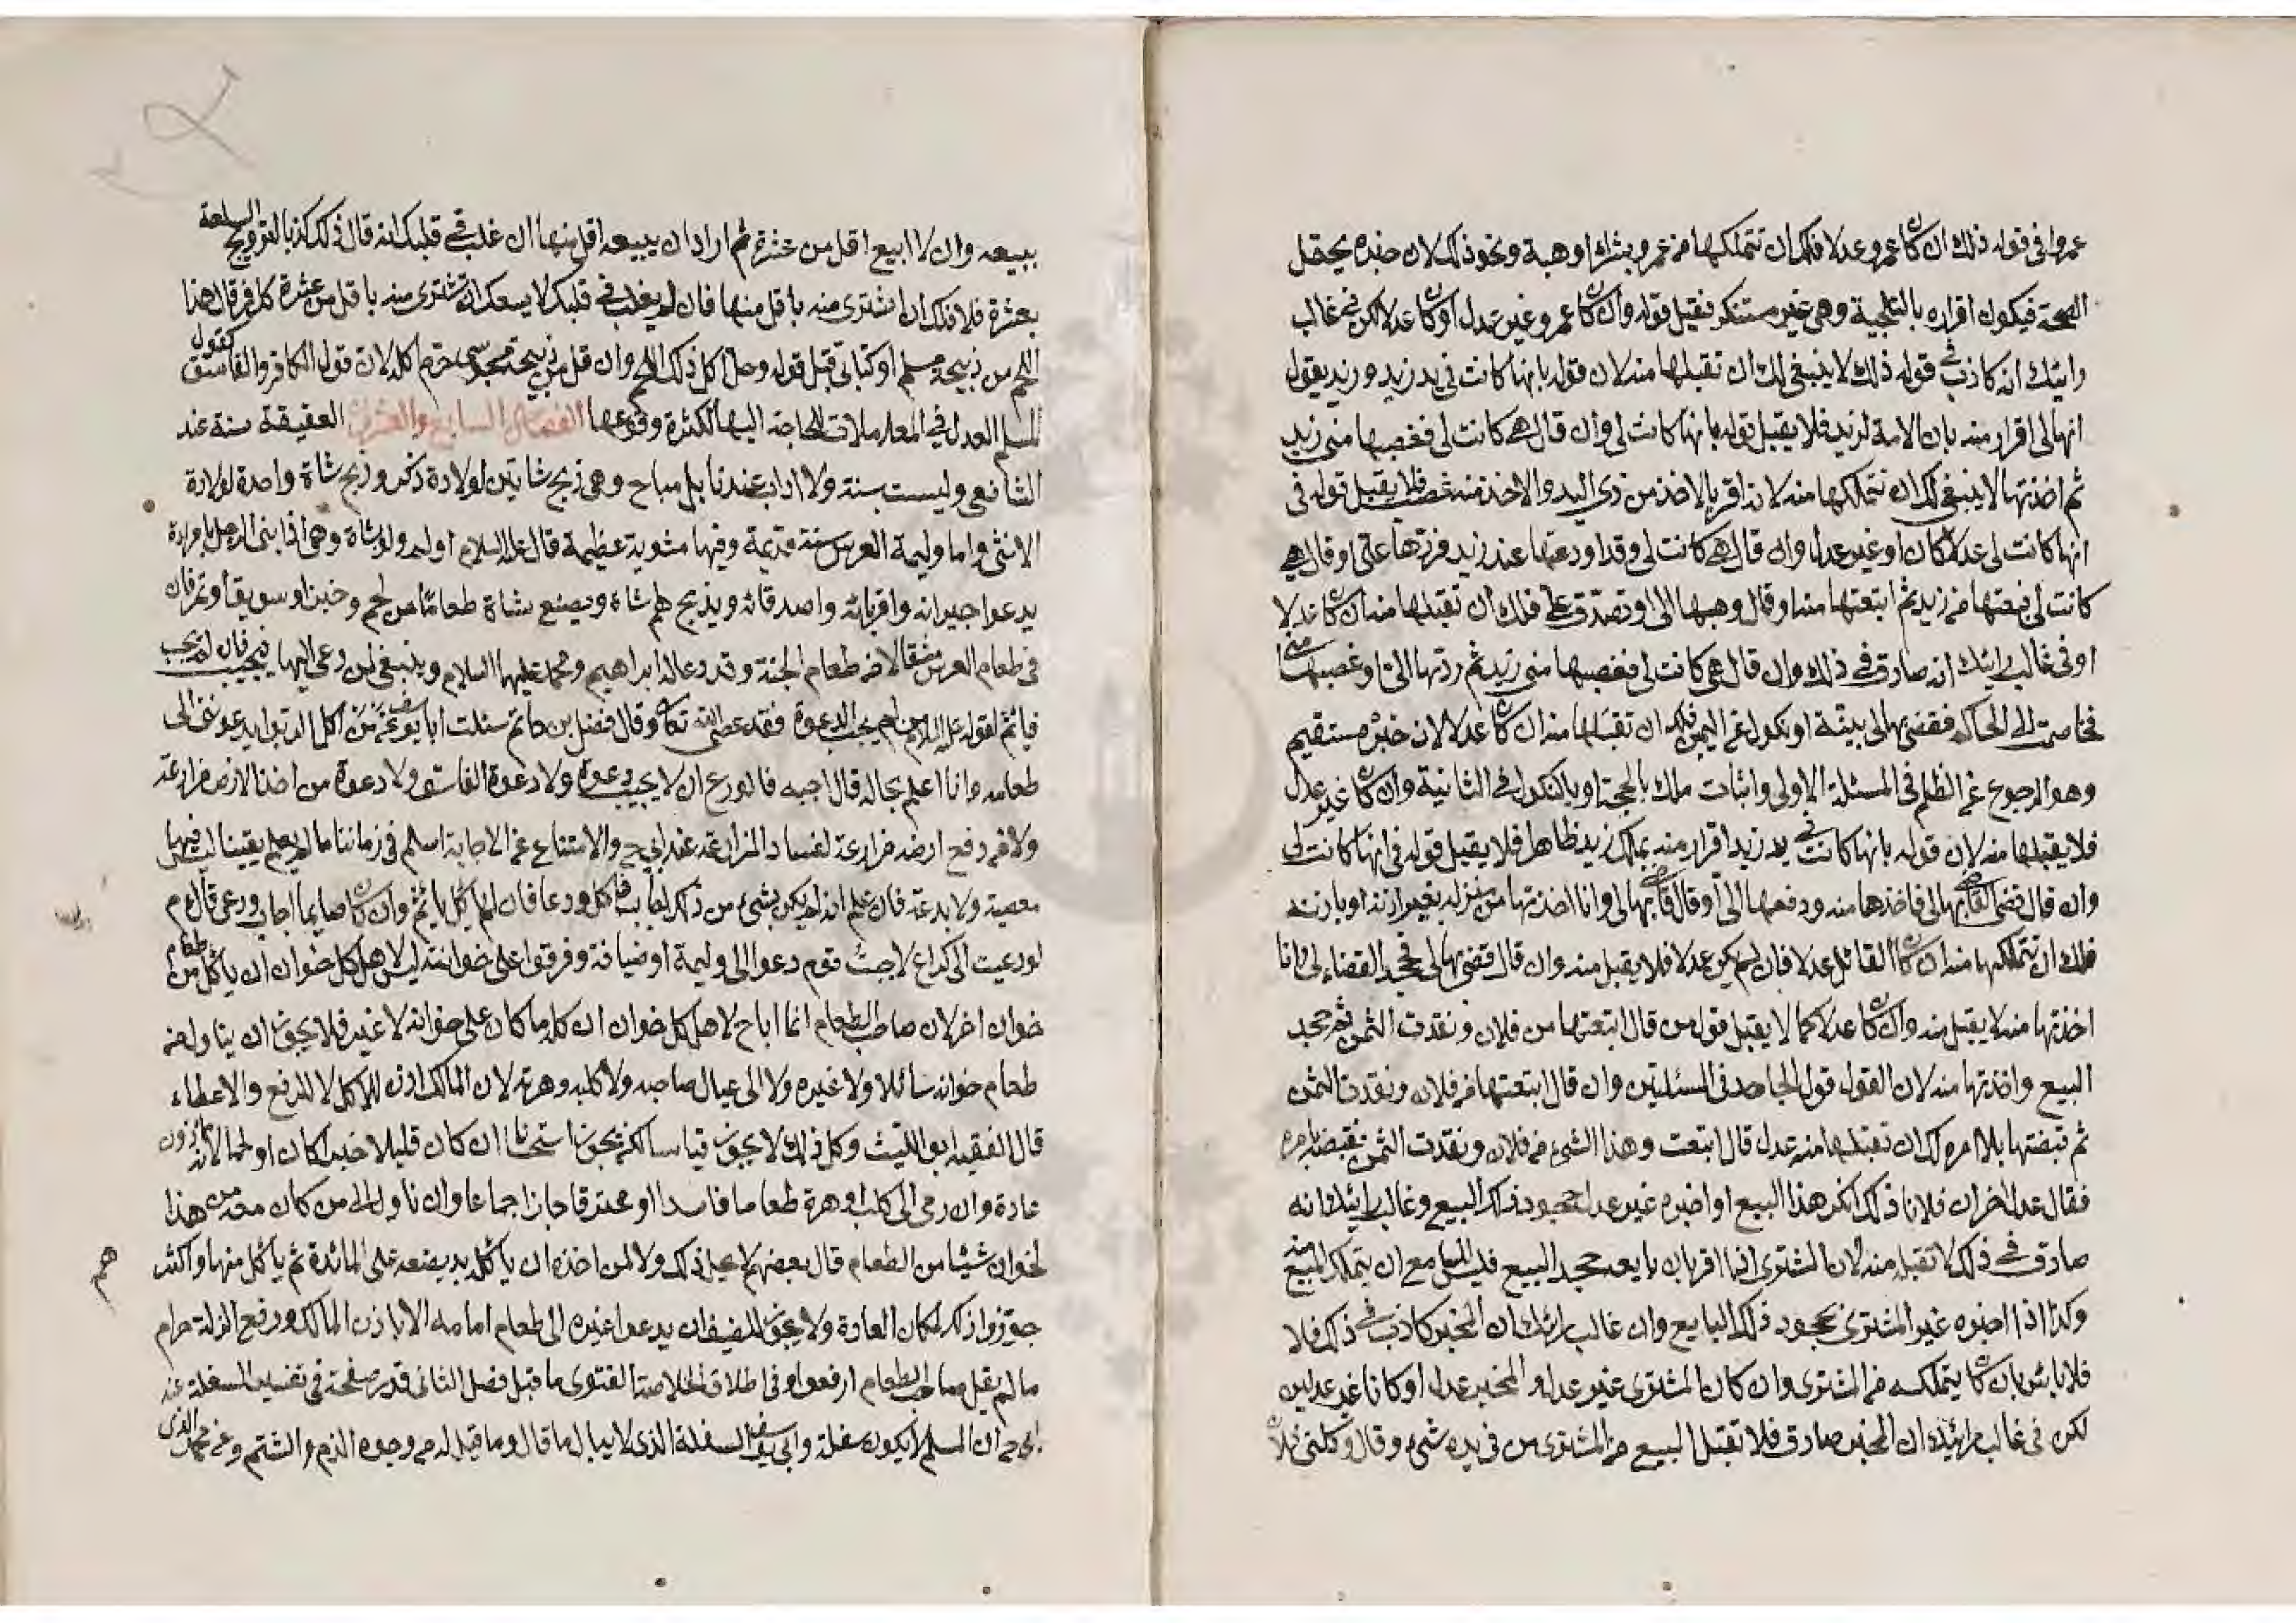 عمروا في قوله ذلك ان كان عمرو عدلا فلك ان تتملكها من عمرو بشراء او هبة ونحو ذلك لان خبره يحتمل
الصحة فيكون اقراره بالتلجية وهي غير مستنكر فيقبل قوله وان كان عمرو غير عدل او كان عدلا لكن في غالب
رايك انه كاذب في قوله ذلك لا ينبغي لك ان تقبلها منه لان قوله بانها كانت في يد زيد وزيد يقول
انها لي اقرار منه بان الامة لزيد فلا يقبل قوله بانها كانت لي وان قال هي كانت لي فغصبها مني زيد
ثم اخذتها لا ينبغي لك ان تتملكها منه لانه اقر بالاخذ من ذي اليد والاخذ منه غصب فلا يقبل قوله في
انها كانت لي عدلا كان او غير عدل وان قال هي كانت لي وقد اودعتها عند زيد فردها علي او قال هي
كانت لي بعتها من زيد ثم ابتعتها منه او قال وهبها الي او تصدق علي فلك ان تقبلها منه ان كان عدلا
او في غالب رايك انه صادق في ذلك وان قال هي كانت لي فغصبها مني زيد ثم ردتها الي او غصبها مني
فخاصمت الى الحاكم فقضى بها لي ببينة او نكول عن اليمين فلك ان تقبلها منه ان كان عدلا لان خبره مستقيم
وهو الرجوع عن الظلم في المسئلة الاولى واثبات ملك بالحجة او بالنكول في الثانية وان كان غير عدل
فلا يقبلها منه لان قوله بانها كانت في يد زيد اقرار منه بملك زيد ظاهرا فلا يقبل قوله في انها كانت لي
وان قال قضى القاضي بها لي فاخذها منه ودفعها الي او قال قاضي بها لي وانا اخذتها من منزله بغير اذنه او باذنه
فلك ان تتملكها منه ان كان القائل عدلا فان لم يكن عدلا فلا يقبل منه وان قال قضى بها لي فجحد القضاء لي وانا
اخذتها منه لا يقبل منه وان كان عدلا كما لا يقبل قول من قال ابتعتها من فلان ونقدت الثمن ثم جحد
البيع واخذتها منه لان القول قول الجاحد في المسئلتين وان قال ابتعتها من فلان ونقدت الثمن
ثم قبضتها بلا امره لك ان تقبلها منه عدل قال ابتعت وهذا الشيء من فلان ونقدت الثمن بقبضه بامره
فقال عدل اخر ان فلانا ذلك انكر هذا البيع او اخبره غير عدل بجحود ذلك البيع وغالب رايك انه
صادق في ذلك لا تقبله منه لان المشتري انما اقر بان بايعه جحد البيع فليس للسامع ان يتملك المبيع منه
وكذا اذا اخبره غير المشتري بجحود ذلك البايع وان غالب رائك ان المخبر كاذب في ذلك فلا
فلا باس بان كان يتملكه من المشتري وان كان المشتري غير عدل والمخبر عدل او كانا غير عدلين
لكن في غالب رائيك ان المخبر صادق فلا تقبل البيع من المشتري من في يده شيء وقال وكلني فلان
ببيعه وان لا ابيع اقل من عشرة ثم اراد ان يبيعه اقل منها ان غلب في قلبك انه قال ذلك كذبا لترويج السلعة
بعشرة فلا فلك ان تشتري منه باقل منها فان لم يغلب في قلبك لا يسعك ان تشتري منه باقل من عشرة كافر قال هذا
اللحم من ذبيحة مسلم او كتابي قبل قوله وحل اكل ذلك اللحم وان قال من ذبيحة مجوسي حرم اكله لان قول الكافر والفاسق كقول
المسلم العدل في المعاملات للحاجة اليها لكثرة وقوعها الفصل السابع والعشرون العقيقة سنة عند
الشافعي وليست بسنة ولا ادب عندنا بل مباح وهي ذبح شاتين لولادة ذكر وذبح شاة واحدة لولادة
الانثى واما وليمة العرس سنة قديمة وفيها مثوبة عظيمة قال عليه السلام اولم ولو بشاة وهي اذا ابنى الرجل بامراءة
يدعوا جيرانه واقربائه واصدقائه ويذبح لهم شاة ويصنع بشاة طعاما من لحم وخبز او سويق او تمر فان
في طعام العرس مثقالا من طعام الجنة وقد دعا له ابراهيم ومحمد عليهما السلام وينبغي لمن دعي اليها فيجيب فان لم يجب
فيأثم لقوله عليه السلام من لم يجب الدعوة فقد عصى الله تعالى وقال فضل بن حاتم سئلت ابا يوسف عمن اكل الربوا يدعوني الى
طعامه وانا اعلم بحاله قال اجبه فالورع ان لا يجيب دعوة ولا دعوة الفاسق ولا دعوة من اخذ الارض مزارعة
ولا من دفع ارضه مزارعة لفساد المزارعة عند ابي ح والامتناع عن الاجابة اسلم في زماننا ما لم يعلم يقينا ليس فيها
معصية ولا بدعة فان علم انه لم يكن بشيء من ذلك اجاب فاكل ودعا فان لم ياكل لم يأثم وان كان صايما اجاب ودعى قال م
لو دعيت الى كراع لاجبت قوم دعوا الى وليمة او ضيافة وفرقوا على خوانة ليس لاهل كل خوان ان ياكل من طعام
خوان اخر لان صاحب الطعام انما اباح لاهل كل خوان اكل ما كان على خوانه لا غير فلا يجوز ان يناول من
طعام خوانه سائلا ولا غيره ولا الى عيال صاحبه ولا كلبه وهرته لان المالك اذن للاكل لا للدفع والاعطاء
قال الفقيه ابو الليث وكل ذلك لا يجوز قياسا لكن يجوز استحسانا ان كان قليلا خبزا كان او لحما لانه ماذون
عادة وان رمى الى كلب او هرة طعاما فاسدا او محترقا جاز اجماعا وان ناول الى من كان معه من هذا
الخوان شيئا من الطعام قال بعضهم لا يحل ذلك ولا لمن اخذه ان ياكله بل يضعه على المائدة ثم ياكل منها واكثرهم
جوزوا ذلك لمكان العادة ولا يجوز للضيف ان يدعوا غيره الى طعام امامه الا باذن المالك ورفع الزلة حرام
ما لم يقل صاحب الطعام ارفعوا وفي اطلاق الخلاصة الفتوى ما قبل فصل الثاني قدر صفحة في تفسير السفلة عند
ابي ح ان المسلم لا يكون سفلة وابي يوسف السفلة الذي لا يبالي ما قال وما قيل له من وجوه الذم والشتم وعن محمد الذي